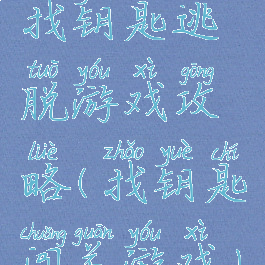 找钥匙逃
tuō yóu xì gōng
脱游戏攻
luè zhǎo yuè chí
略(找钥匙
chuǎng guān yóu xì
闯关游戏)